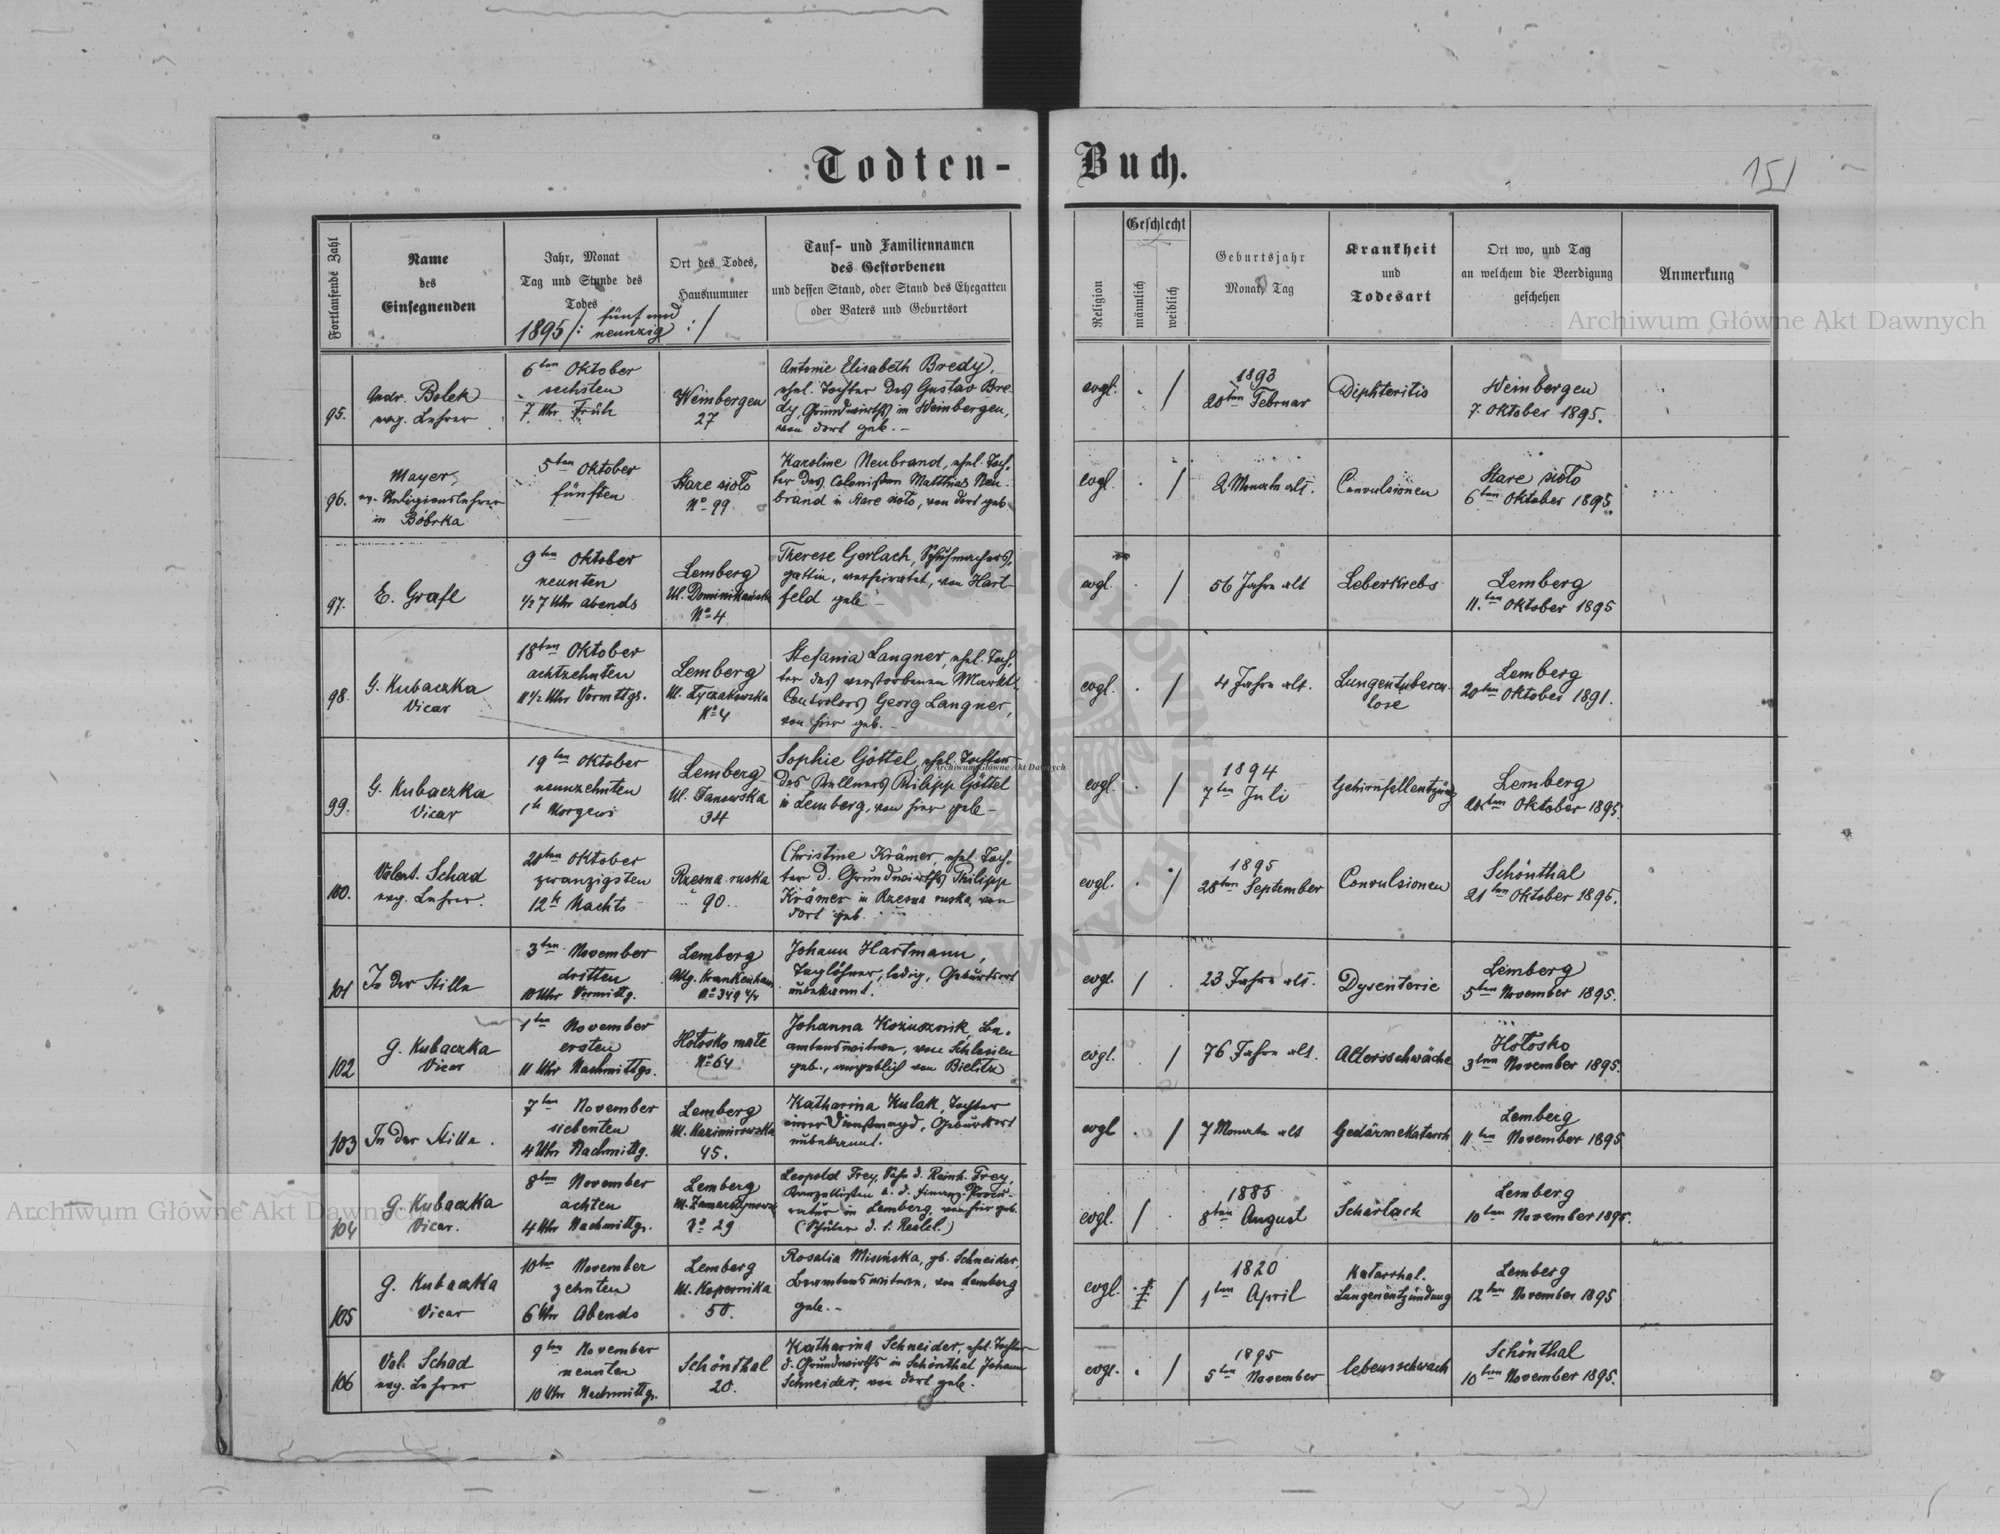 Todten-Buch.
151
Fortlaufende Zahl
Name
des
Einsegnenden
Jahr, Monat
Tag und Stunde des
Todes
1895 /: fünf und
neunzig :/
Ort des Todes,
Hausnummer
Tauf- und Familiennamen
des Gestorbenen
und dessen Stand, oder Stand des Ehegatten
oder Vaters und Geburtsort
Religion
Geschlecht
männlich
weiblich
Geburtsjahr
Monat, Tag
Krankheit
und
Todesart
Ort wo, und Tag
an welchem die Beerdigung
geschehen
Anmerkung
95.
Andr. Bolek
evg. Lehrer
6ten Oktober
sechsten
7 Uhr Früh
Weinbergen
27
Antonie Elisabeth Bredy,
ehel. Tochter des Gustav Bre-
dy, Grundwirths in Weinbergen,
von dort geb. -
evgl. . /
1893
20ten Februar
Diphteritis
Weinbergen
7. Oktober 1895.
96.
Mayer,
ev. Religionslehrer
in Bóbrka
5ten Oktober
fünften
Stare sioło
No 99
Karoline Neubrand, ehel. Toch-
ter des Colonisten Matthias Neu-
brand in Stare sioło, von dort geb.
evgl. . /
2 Monate alt.
Convulsionen
Stare sioło
6ten Oktober 1895.
97.
E. Grafl
9ten Oktober
neunten
1/2 7 Uhr abends
Lemberg
Ul. Dominikańska
No 4
Therese Gerlach, Schuhmachers-
gattin, verheiratet, von Hart-
feld geb. -
evgl. . /
56 Jahre alt
Leberkrebs
Lemberg
11.ten Oktober 1895
98.
G. Kubaczka
Vicar
18ten Oktober
achtzehnten
11 1/2 Uhr Vormttgs.
Lemberg
Ul. Łyczakowska
No 4
Stefania Langner, ehel. Toch-
ter des verstorbenen Markt-
Controlors Georg Langner,
von hier geb. -
evgl. . /
4 Jahre alt.
Lungentubercu-
lose
Lemberg
20ten Oktober 1891.
99.
G. Kubaczka
Vicar
19ten Oktober
neunzehnten
1h Morgens
Lemberg
Ul. Janowska
34
Sophie Göttel, ehel. Tochter
des Kellners Philipp Göttel
in Lemberg, von hier geb. -
evgl. . /
1894
7ten Juli
Gehirnfellentzündg
Lemberg
Oktober 1895.
100.
Valent. Schad
evg. Lehrer.
20ten Oktober
zwanzigsten
12h Nachts
Rzesna ruska
90.
Christine Krämer, ehel. Toch-
ter d. Grundwirths Philipp
Krämer in Rzesna ruska, von
dort geb.
evgl. . /
1895
28ten September
Convulsionen
Schönthal
21ten Oktober 1895.
101
In der Stille
3ten November
dritten
10 Uhr Vormittg.
Lemberg
Allg. Krankenhaus
No 349 4/4
Johann Hartmann,
Taglöhner, ledig, Geburtsort
unbekannt.
evgl. / .
23 Jahre alt.
Dysenterie
Lemberg
5ten November 1895.
102
G. Kubaczka
Vicar
1ten November
ersten
11 Uhr Nachmittgs.
Hołosko małe
No 64
Johanna Kożusznik, Be-
amtenswitwe, von Schlesien
geb., angeblich von Bielitz
evgl. /
76 Jahre alt.
Altersschwäche
Hołosko
3ten November 1895.
103
In der Stille.
7ten November
siebenten
4 Uhr Nachmittg.
Lemberg
Ul. Kazimirowska
45.
Katharina Kulak, Tochter
einer Dienstmagd, Geburtsort
unbekannt.
evgl . /
7 Monate alt
Gedärmekatarrh
Lemberg
11ten November 1895
104
G. Kubaczka
Vicar.
8ten November
achten
4 Uhr Nachmittgs.
Lemberg
No 29
Leopold Frey, Sohn d. Reinh. Frey,
Kanzellisten b. d. Finanz-Procu-
ratur in Lemberg, von hier geb.
(Schüler d. 1. Realcl.)
evgl. / .
1885
8ten August
Scharlach
Lemberg
10ten November 1895.
105
G. Kubaczka
Vicar
10ten November
zehnten
6 Uhr Abends
Lemberg
Ul. Kopernika
50.
Rosalia Misińska, gb. Schneider,
Beamtenswitwe, von Lemberg
geb. -
evgl. /
1820
1ten April
Katarrhal.
Lungenentzündung
Lemberg
12ten November 1895
106
Val. Schad
evg. Lehrer
9ten November
neunten
10 Uhr Nachmittgs.
Schönthal
20.
Katharina Schneider, ehel. Tochter
d. Grundwirths in Schönthal Johann
Schneider, von dort geb.
evgl. . /
1895
5ten November
lebensschwach
Schönthal
10ten November 1895.
Archiwum Główne Akt Dawnych
Archiwum Główne Akt Dawnych
Archiwum Główne Akt Dawnych